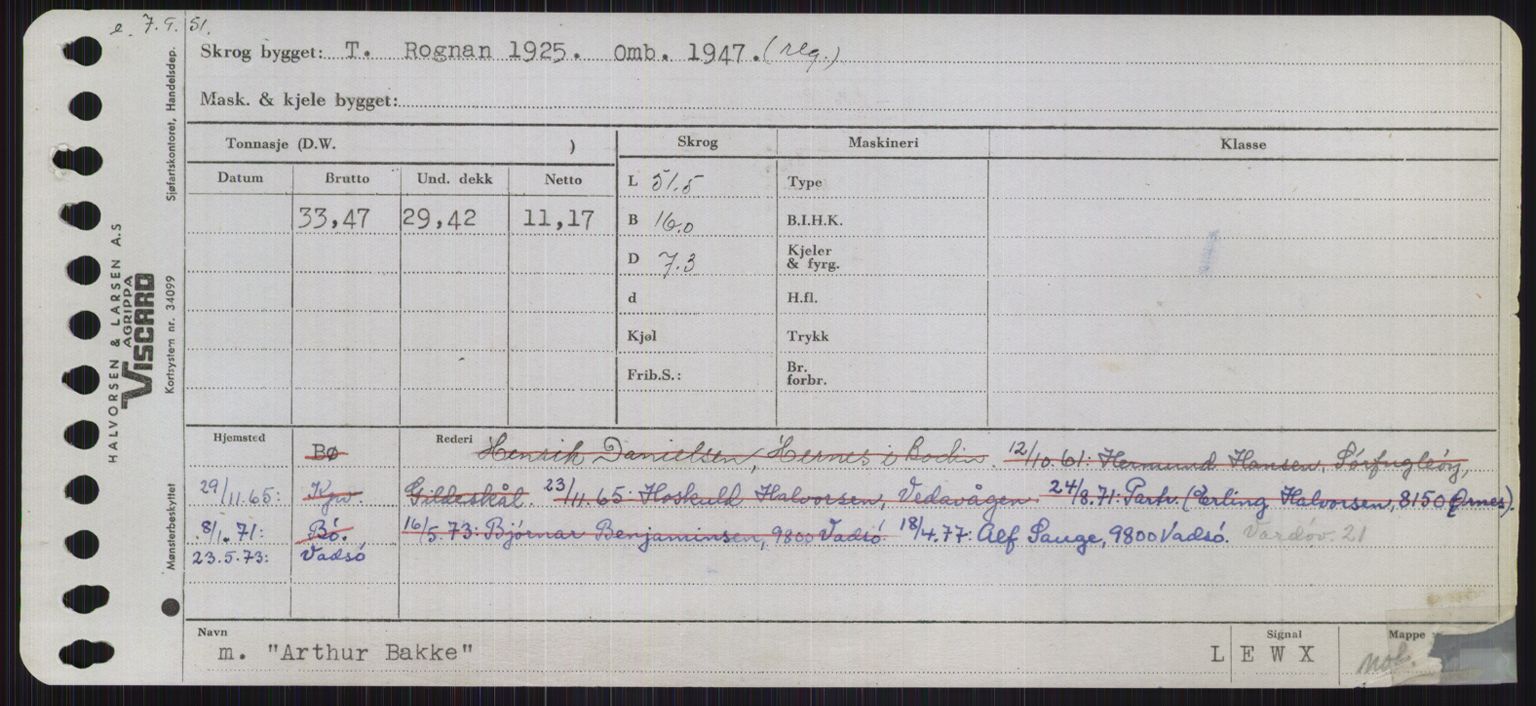 e. 7.9.51.
Skrog bygget: T. Rognan 1925. Omb. 1947. (reg.)
Mask. & kjele bygget:
Tonnasje (D.W. ) Skrog Maskineri Klasse
Datum Brutto Und. dekk Netto L 51.5 Type
33,47 29,42 11,17 B 16.0 B.I.H.K.
D 7.3 Kjeler & fyrg.
d H.fl.
Kjøl Trykk
Frib.S.: Br. forbr.
Hjemsted Rederi
Bø Henrik Danielsen, Hernes i Bodin. 12/10.61: Hermund Hansen, Sørfugleøy,
29/11.65: Kpv. Gildeskål. 23/11.65: Hoskuld Halvorsen, Vedavågen. 24/8.71: Partr. (Erling Halvorsen, 8150 Ørnes).
8/1.71: Bø. 16/5.73: Bjørnar Benjaminsen, 9800 Vadsø. 18/4.77: Alf Sauge, 9800 Vadsø. Vardøv. 21
23.5.73: Vadsø
Navn Signal Mappe
m. "Arthur Bakke" L E W X
Mok.
Sjøfartskontoret, Handelsdep.
Kortsystem nr. 34099
Mønsterbeskyttet
HALVORSEN & LARSEN A.S
AGRIPPA
VISCARD